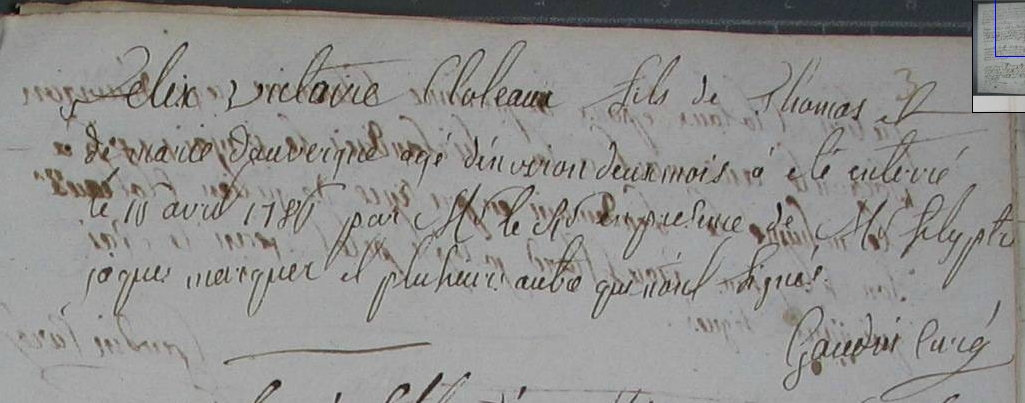 Felix victoire Cloleaux fils de Thomas et
de marie dauvergne agé d'environ deux mois à eté enterré
le 10 avril 178 par Mr le en presence de
jaques marquer et plusieurs autre qui n'ont signés.
Gaudin Curé